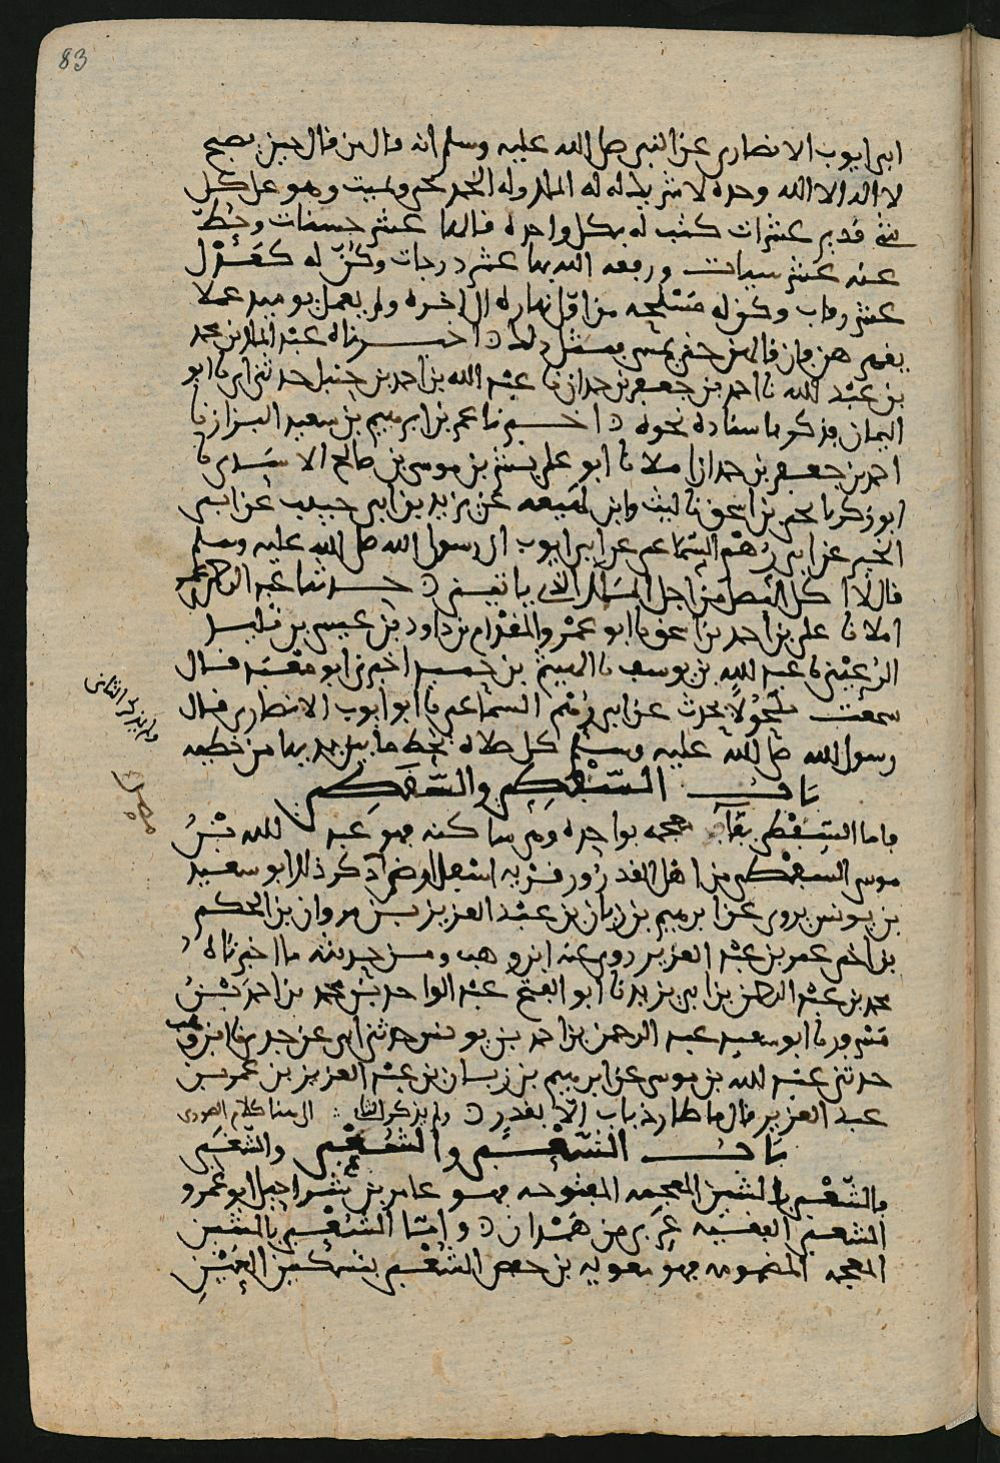 83
ابى ايوب الانصارى عن النبى صلى الله عليه وسلم انه قال من قال حين يصبح
لا اله الا الله وحده لا شريك له له الملك وله الحمد يحيى ويميت وهو على كل
شىء قدير عشر مرات كتب له بكل واحدة قالها عشر حسنات وحط
عنه عشر سيات ورفعه الله بها عشر درجات وكن له كعدل
عشر رقاب وكن له مسلحة من اول نهاره الى اخره ولم يعمل يوميذ عملا
يقهرهن فان قالهن حين يمسى فمثل ذلك اخبرناه عبد الملك بن محمد
بن عبد الله نا احمد بن جعفر بن حمدان نا عبد الله بن احمد بن حنبل حدثنى ابى نا ابو
اليمان فذكر باسناده نحوه اخبرنا عمر بن ابرهيم بن سعيد البزاز نا
احمد بن جعفر بن حمدان املا نا ابو على بشر بن موسى بن صالح الاسدى نا
ابو زكريا يحيى بن اسحق نا ليث وابن لهيعه عن يزيد بن ابى حبيب عن ابى
الخير عن ابى رهم السماعى عن ابى ايوب ان رسول الله صلى الله عليه وسلم
قال
املا نا على بن احمد بن اسحق نا ابو عمرو المقدام بن داود بن عيسى بن تليد
الرعينى نا عبد الله بن يوسف نا الهيثم بن حميد اخبرنى ابو معيد قال
سمعت مكحولا يحدث عن ابى رهم السماعى نا ابو ايوب الانصارى قال
رسول الله صلى الله عليه وسلم كل صلاة تحط ما بين يديها من خطيه
ولم يذكر الثانى
باب
فاما بواحدة وفى ساكنه فهو عبد الله بن
موسى من اهل الفدك ذكر ذلك ابو سعيد
بن يونس يروى عن ابرهيم بن زبان بن عبد العزيز بن مروان بن الحكم
بن اخى عمر بن عبد العزيز روى عنه ابن وهب ومن حديثه ما اخبرناه
محمد بن عبد الرحمن بن ابى يزيد نا ابو الفتح عبد الواحد بن محمد بن احمد بن
مسرور نا ابو سعيد عبد الرحمن بن احمد بن يونس حدثنى ابى عن جدى نا ابن وهب
حدثنى عبد الله بن موسى عن ابرهيم بن زبان بن عبد العزيز بن عمر بن
عبد العزيز قال ما طار ذباب الا بقدر ولم يذكر الثانى الى هنا كلام الصورى
باب الشعبى والشعبى والشغبى
فالشعبى بالشين المعجمه المفتوحه فهو عامر بن شراحيل ابو عمرو
الشعبى الفقيه عربى من همدان واما الشعبى بالشين
المعجمه المضمومه فهو معويه بن حفص الشعبى بتسكين العين